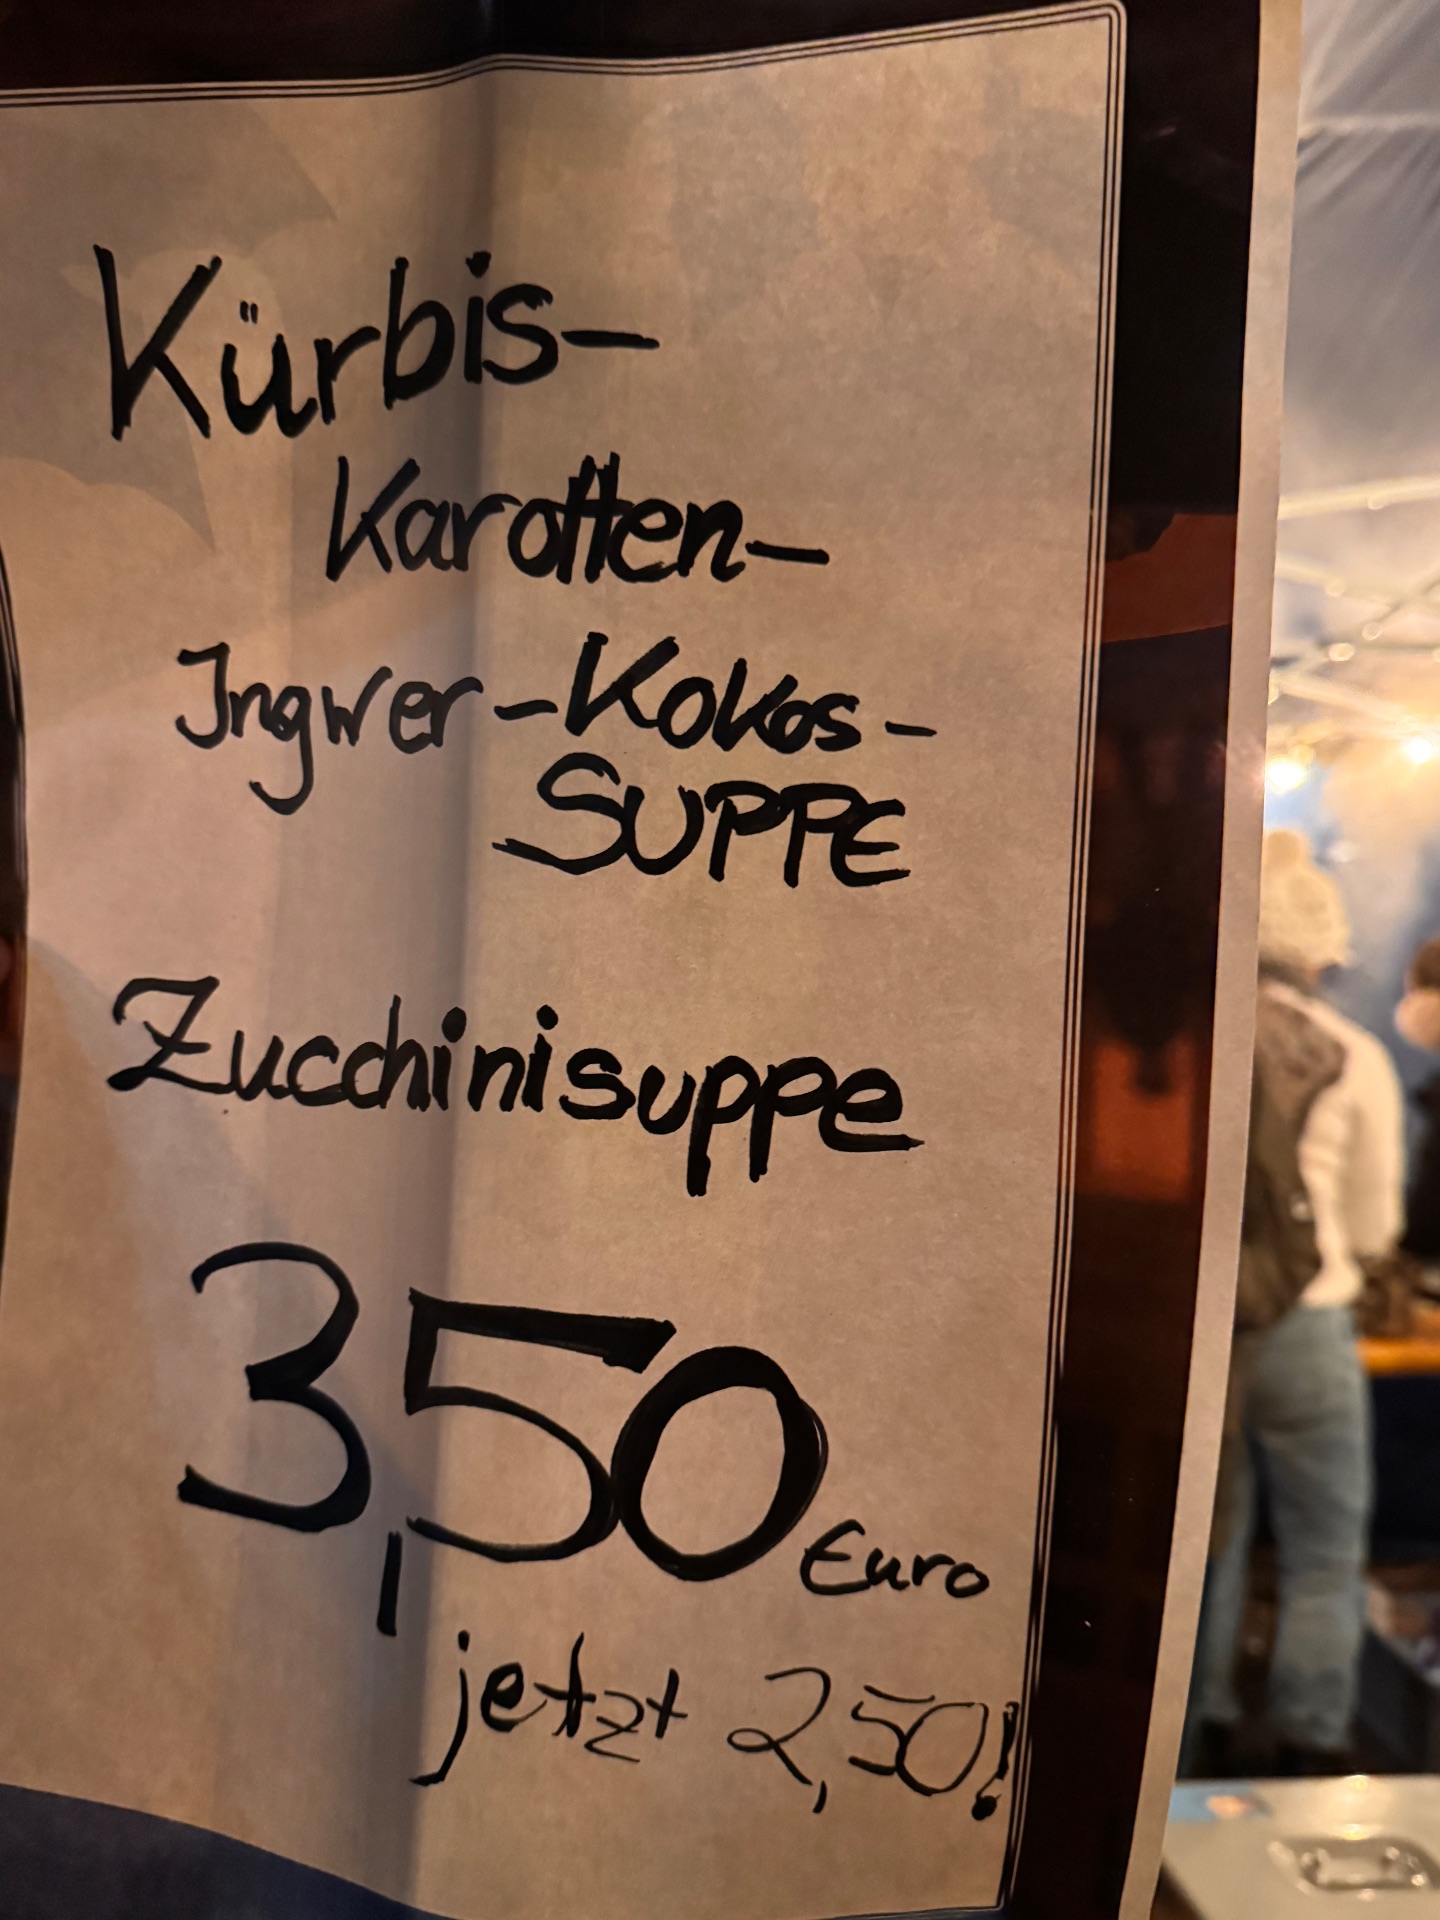 Kürbis-
Karotten-
Ingwer-Kokos-
SUPPE
Zucchinisuppe
3,50 Euro
jetzt 2,50!